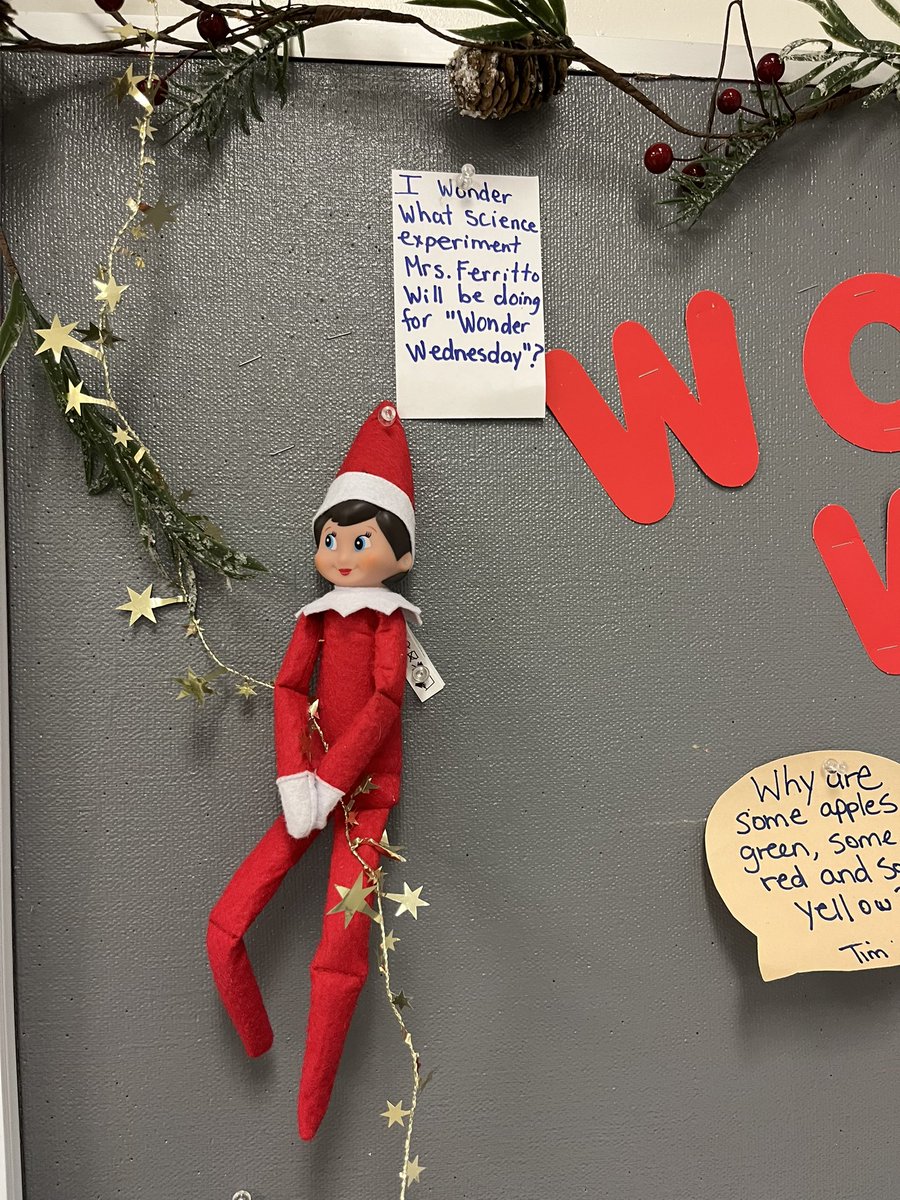 I Wonder
What science
experiment
Mrs. Ferritto
Will be doing
for "Wonder
Wednesday"?
WO
W
Why are
some apples
green, some
red and so
yellow?
Tim